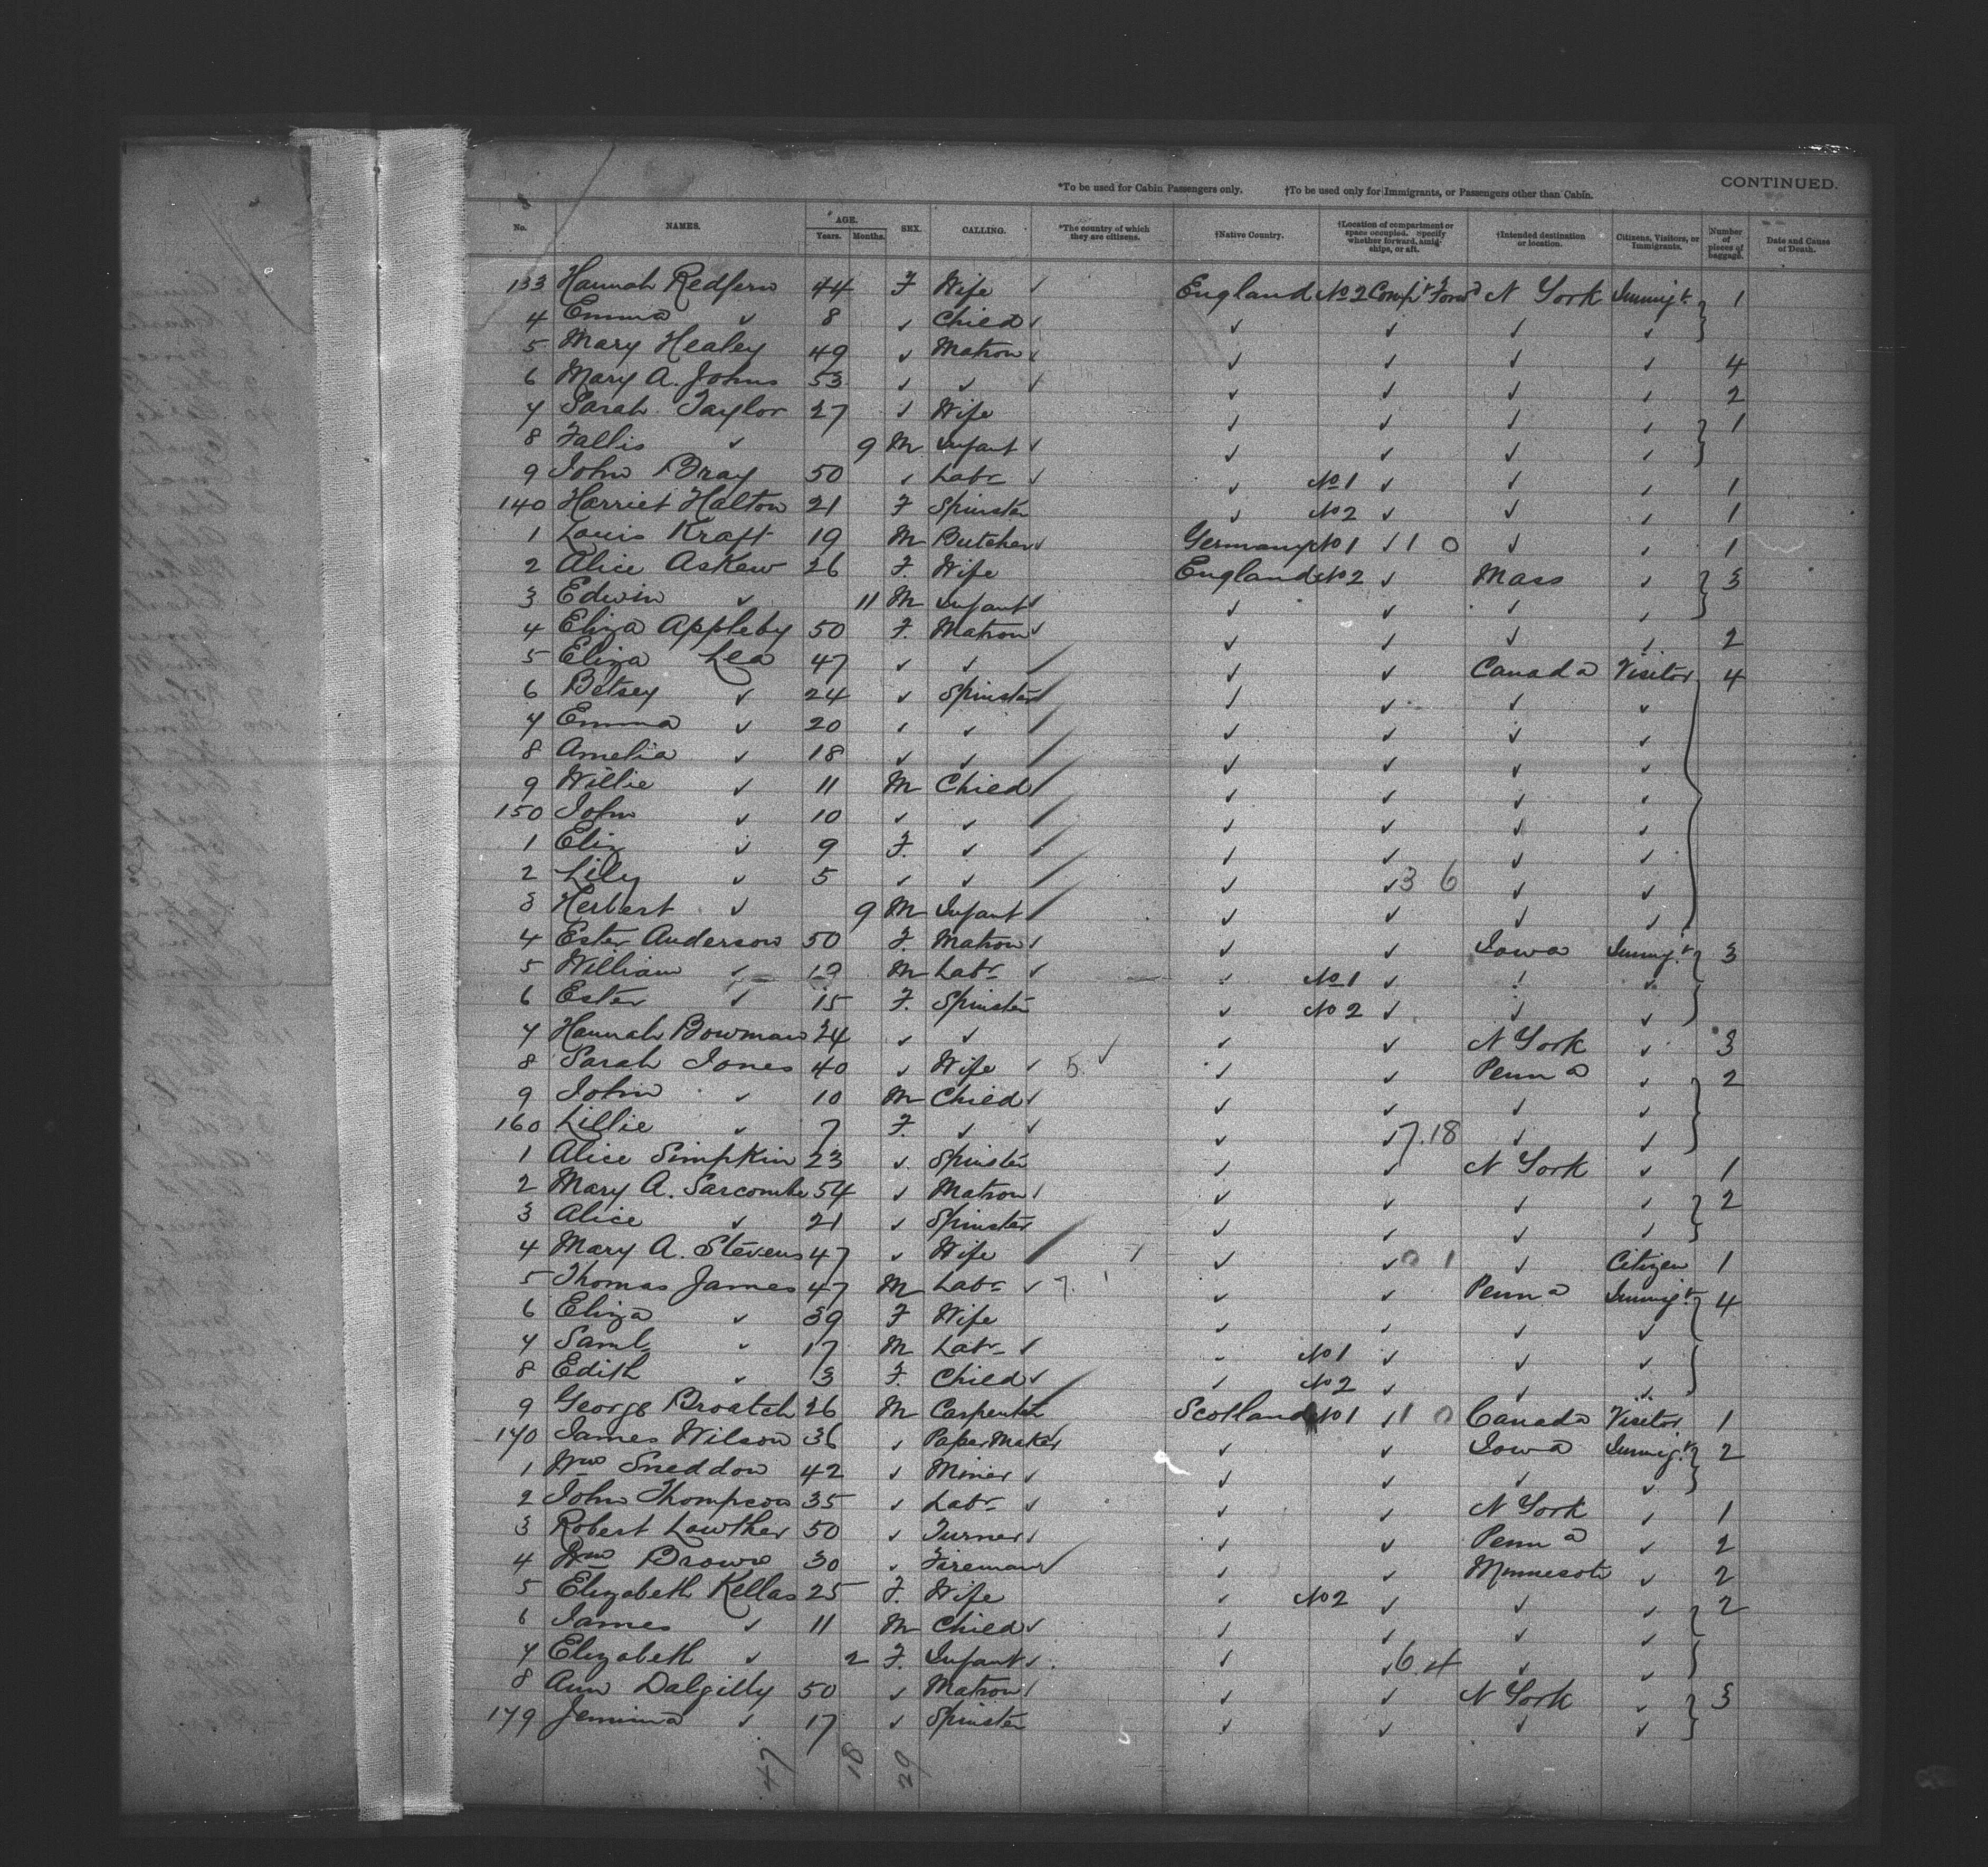 CONTINUED.
*To be used for Cabin Passengers only. †To be used only for Immigrants, or Passengers other than Cabin.
No. NAMES. AGE. Years. Months. SEX. CALLING. *The country of which they are citizens. †Native Country. †Location of compartment or space occupied. Specify whether forward, amidships, or aft. †Intended destination or location. Citizens, Visitors, or Immigrants. Number of pieces of baggage. Date and Cause of Death.
133 Hannah Redfern 44 F Wife ✓ England No 2 Compt Forwd N York Immigt. 1
4 Emma ✓ 8 ✓ Child ✓ ✓ ✓ ✓ ✓
5 Mary Healey 49 ✓ Matron ✓ ✓ ✓ ✓ ✓ 4
6 Mary A. Johns 53 ✓ ✓ ✓ ✓ ✓ ✓ ✓ 2
7 Sarah Taylor 27 ✓ Wife ✓ ✓ ✓ ✓ 1
8 Fallis ✓ 9 M Infant ✓ ✓ ✓ ✓ ✓
9 John Bray 50 ✓ Labr ✓ ✓ No 1 ✓ ✓ ✓ 1
140 Harriet Halton 21 F Spinster ✓ No 2 ✓ ✓ ✓ 1
1 Louis Kraft 19 M Butcher ✓ Germany No 1 ✓ 1 0 ✓ ✓ 1
2 Alice Askew 26 F. Wife England No 2 ✓ Mass ✓ 3
3 Edwin ✓ 11 M Infant ✓ ✓ ✓ ✓ ✓
4 Eliza Appleby 50 F. Matron ✓ ✓ ✓ ✓ ✓ 2
5 Eliza Lea 47 ✓ ✓ ✓ ✓ Canada Visitor 4
6 Betsey ✓ 24 ✓ Spinster ✓ ✓ ✓ ✓
7 Emma ✓ 20 ✓ ✓ ✓ ✓ ✓ ✓
8 Amelia ✓ 18 ✓ ✓ ✓ ✓ ✓ ✓
9 Willie ✓ 11 M Child ✓ ✓ ✓ ✓
150 John ✓ 10 ✓ ✓ ✓ ✓ ✓ ✓
1 Eliz ✓ 9 F. ✓ ✓ ✓ ✓ ✓
2 Lily ✓ 5 ✓ ✓ ✓ ✓ 3 6 ✓ ✓
3 Herbert ✓ 9 M Infant ✓ ✓ ✓ ✓
4 Ester Anderson 50 F. Matron ✓ ✓ ✓ Iowa Immigt 3
5 William ✓ 19 M Labr ✓ ✓ No 1 ✓ ✓ ✓
6 Ester ✓ 15 F. Spinster ✓ No 2 ✓ ✓ ✓
7 Hannah Bowman 24 ✓ ✓ ✓ ✓ N York ✓ 3
8 Sarah Jones 40 ✓ Wife ✓ 5 ✓ ✓ ✓ Penna ✓ 2
9 John ✓ 10 M Child ✓ ✓ ✓ ✓ ✓
160 Lillie ✓ 7 F. ✓ ✓ ✓ ✓ 7.18 ✓ ✓
1 Alice Simpkin 23 ✓ Spinster ✓ ✓ N York ✓ 1
2 Mary A. Sarcombe 54 ✓ Matron ✓ ✓ ✓ ✓ ✓ 2
3 Alice ✓ 21 ✓ Spinster ✓ ✓ ✓ ✓
4 Mary A. Stevens 47 ✓ Wife ✓ ✓ 0 1 ✓ Citizen 1
5 Thomas James 47 M Labr ✓ 7. ✓ ✓ Penna Immigt 4
6 Eliza ✓ 39 F Wife ✓ ✓ ✓ ✓
7 Saml ✓ 17 M Labr ✓ ✓ No 1 ✓ ✓ ✓
8 Edith ✓ 3 F. Child ✓ ✓ No 2 ✓ ✓ ✓
9 George Broatch 26 M Carpenter Scotland No 1 ✓ 1 0 Canada Visitor 1
170 James Wilson 36 ✓ Paper Maker ✓ ✓ Iowa Immigt 2
1 Wm Sneddon 42 ✓ Miner ✓ ✓ ✓ ✓ ✓
2 John Thompson 35 ✓ Labr ✓ ✓ ✓ N York ✓ 1
3 Robert Lowther 50 ✓ Turner ✓ ✓ ✓ Penna ✓ 2
4 Wm Brown 30 ✓ Fireman ✓ ✓ ✓ Minnesota ✓ 2
5 Elizabeth Kellas 25 F. Wife ✓ No 2 ✓ ✓ ✓ 2
6 James ✓ 11 M Child ✓ ✓ ✓ ✓ ✓
7 Elizabeth ✓ 2 F. Infant ✓ ✓ ✓ 6.4 ✓ ✓
8 Ann Dalgilly 50 ✓ Matron ✓ ✓ ✓ N York ✓ 3
179 Jemima ✓ 17 ✓ Spinster ✓ ✓ ✓ ✓
47 18 29